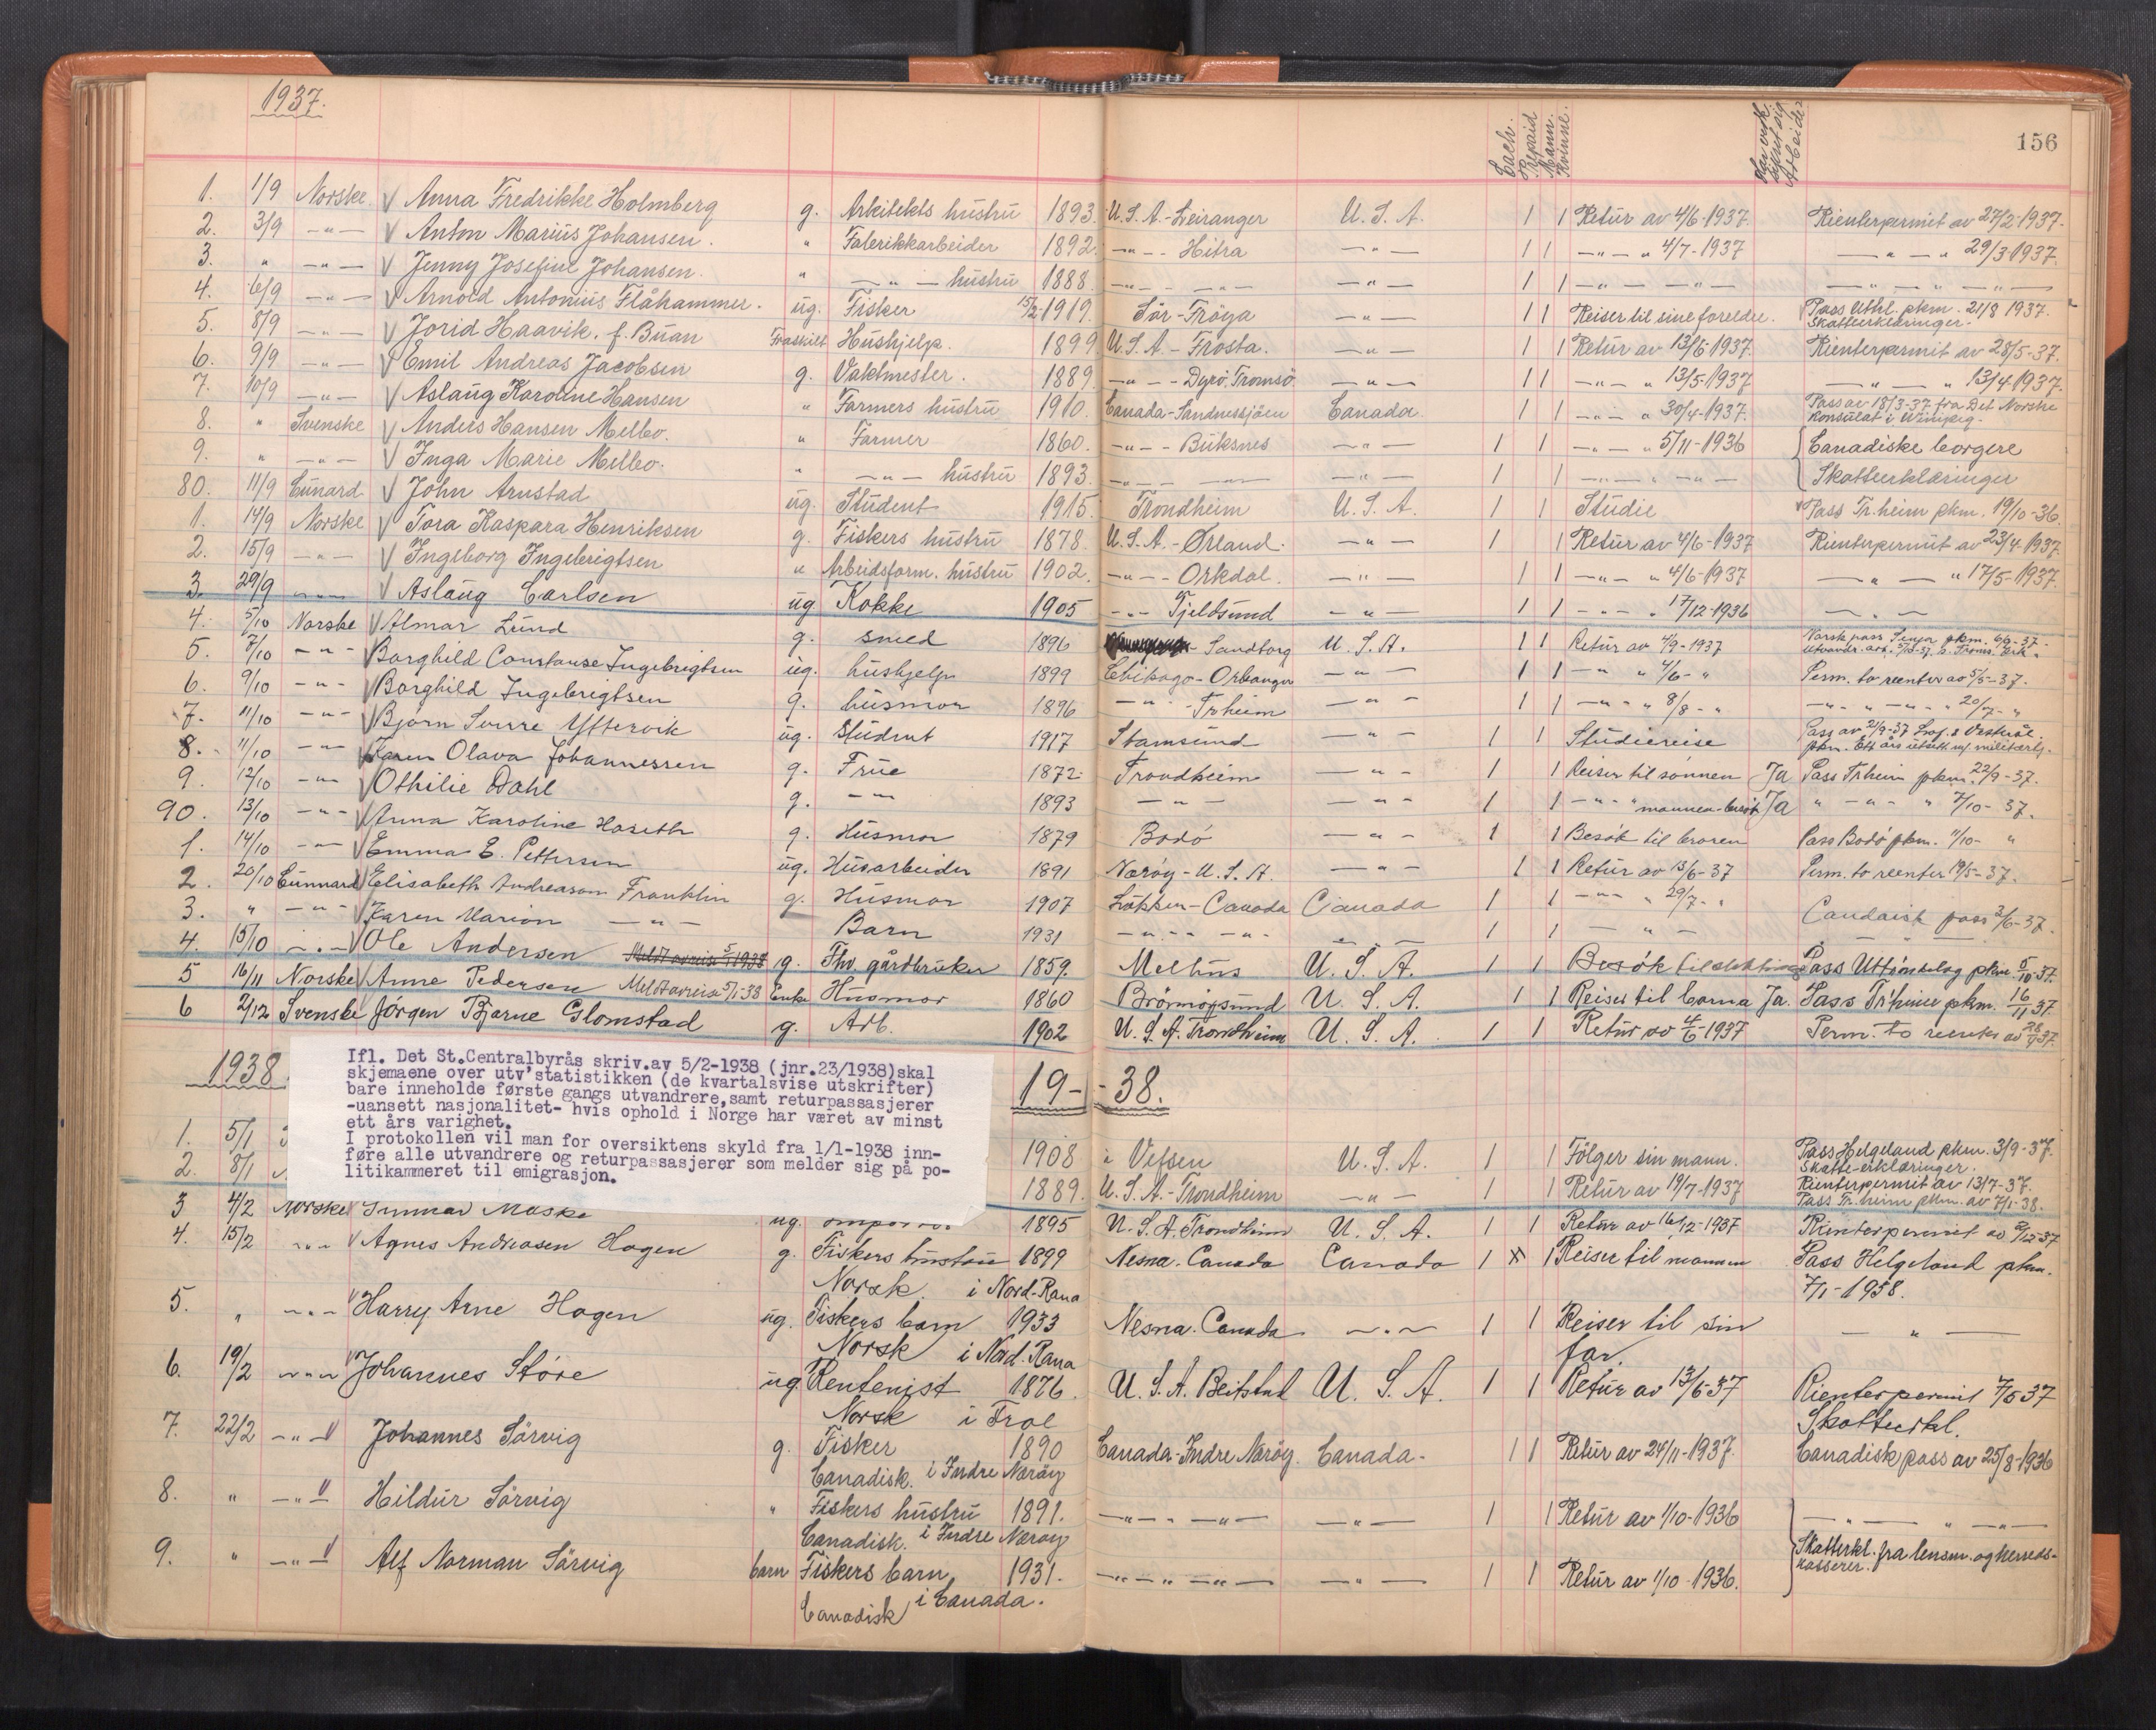 1937.
156
Cach. Prepaid Mann. Kvinne.
1. 1/9 Norske Anna Fredrikke Holmberg g. Arkitekts hustru 1893. U.S.A.-Leiranger U.S.A. 1 1 Retur av 4/6-1937. Rienterpermit av 27/2-1937.
2. 3/9 -"- Anton Marius Johansen. " Fabrikkarbeider 1892. -"- - Hitra -"- 1 1 -"- " 4/7-1937 -"- " 29/3-1937.
3. " -"- Jenny Josefine Johansen. " -"- hustru 1888. -"- - -"- -"- 1 1 -"- -"- -"- " -"-
4. 6/9 -"- Arnold Antonius Flåhammer. ug. Fisker 15/2-1919. Sör-Fröya -"- 1 1 Reiser til sine foreldre. Pass Uthl. pkm. 21/8 1937. Skatteerklæringer.
5. 8/9 -"- Jorid Haavik. f. Buan Fraskilt Hushjelp. 1899. U.S.A - Frosta. -"- 1 1 Retur av 13/6-1937. Rienterpermit av 28/5-37.
6. 9/9 -"- Emil Andreas Jacobsen g. Vaktmester. 1889. -"- - Dyrö, Tromsö -"- 1 1 -"- " 13/5-1937 -"- " 13/4-1937.
7. 10/9 -"- Aslaug Karoline Hansen " Farmers hustru 1910. Canada-Sandnessjöen Canada 1 1 -"- " 30/4-1937. Pass av 18/3-37 fra Det Norske Konsulat i Winipeg.
8. " Svenske Anders Hansen Melbo. " Farmer 1860. -"- - Buksnes -"- 1 1 -"- " 5/11-1936 Canadiske borgere
9. " -"- Inga Marie Melbo. " -"- hustru 1893. -"- -"- -"- 1 1 -"- " -"- Skatteerklæringer
80. 11/9 Cunard John Arnstad ug. Student 1915. Trondheim U.S.A. 1 1 Studie Pass Tr.heim pkm. 19/10-36.
1. 14/9 Norske Tora Kaspara Henriksen g. Fiskers hustru 1878. U.S.A.-Ørland. -"- 1 1 Retur av 4/6-1937 Rienterpermit av 23/4-1937.
2. 15/9 -"- Ingeborg Ingebrigtsen " Arbeidsform. hustru 1902. -"- - Orkdal. -"- 1 1 -"- " 4/6-1937 -"- " 17/5-1937.
3. 29/9 -"- Aslaug Carlsen ug Kokke 1905 -"- Tjeldsund -"- 1 1 -"- " 17/12-1936 -"-
4. 5/10 Norske Almar Lund g. smed 1896 - Sandtorg U.S.A. 1 1 Retur av 4/9-1937 Norsk pass Senja pkm. 6/9-37-
5. 7/10 -"- Borghild Constanse Ingebrigtsen ug. hushjelp 1899 Chikago-Orkanger -"- 1 1 -"- " 4/6-" Perm. to reenter av 5/5-37.
6. 9/10 -"- Borghild Ingebrigtsen g. husmor 1896 -"- - Trheim -"- 1 1 -"- " 8/8-" -"- " -"- " 20/7-"
7. 11/10 -"- Bjørn Sverre Yttervik ug. Student 1917 Stamsund -"- 1 1 Studiereise Pass av 21/9-37 Lof. & Vesterål. pkm. Ett års utsett m/ militærtj.
8. 11/10 -"- Karen Olava Johannessen g. Frue 1872. Trondheim -"- 1 1 Reiser til sønnen Ja Pass Trheim pkm. 22/9-37.
9. 12/10 -"- Othilie Dahl g. -"- 1893 -"- -"- 1 1 -"- " mannen-besök Ja " -"- " 7/10-37.
90. 13/10 -"- Anna Karoline Haseth g. Husmor 1879 Bodö -"- 1 1 Besök til broren Pass Bodö pkm. 11/10-"
1. 14/10 -"- Emma E. Pettersen ug. Husarbeider 1891 Nærøy-U.S.A. -"- 1 1 Retur av 13/6-37 Perm. to reenter 19/5-37.
2. 20/10 Cunnard Elisabeth Andreason Franklin g. Husmor 1907 Løkken-Canada Canada 1 1 -"- " 29/7-" Candaisk pass 2/6-37.
3. " -"- Karen Marion -"- Barn 1931 -"- -"- -"- 1 1 -"-
4. 15/10 -"- Ole Andersen Meldt avreise 5/1 1938 g. Fhv. gårdbruker 1859. Melhus U.S.A. 1 1 Besök til Pass Uttröndelag pkm. 5/10 37.
5 16/11 Norske Anne Pedersen Meldt avreise 5/1-38 Enke Husmor 1860 Brönnöysund U.S.A. 1 1 Reiser til barna Ja. Pass Tr'heim pkm. 16/11 37.
6 2/12 Svenske Jörgen Bjarne Glomstad g. Arb. 1902 U.S.A. Trondheim U.S.A. 1 1 Retur av 4/6-1937 Perm. to reenter av 28/4 37.
1938
19 - - 38.
Ifl. Det St.Centralbyrås skriv.av 5/2-1938 (jnr.23/1938)skal
skjemaene over utv'statistikken (de kvartalsvise utskrifter)
bare inneholde første gangs utvandrere,samt returpassasjerer
-uansett nasjonalitet- hvis ophold i Norge har været av minst
ett års varighet.
I protokollen vil man for oversiktens skyld fra 1/1-1938 inn-
føre alle utvandrere og returpassasjerer som melder sig på po-
litikammeret til emigrasjon.
1. 5/1 1908 i Vefsen U.S.A. 1 1 Fölger sin mann. Pass Helgeland pkm. 3/9-37. Skatte-erklæringer.
2. 8/1 1889. U.S.A.-Trondheim -"- 1 1 Retur av 19/7-1937 Rienterpermit av 13/7-37. Pass Tr.heim pkm. av 7/1-38.
3 4/2 Norske Gunnar Moske ug. 1895 U.S.A. Trondheim U.S.A. 1 1 Retur av 16/12-1937 Rienterpermit av 2/12-37
4. 15/2 -"- Agnes Andreasen Hagen g. Fiskers hustru 1899 Nesna. Canada Canada 1 x 1 Reiser til mannen Pass Helgeland pkm.
Norsk. i Nord-Rana 7/1-1938.
5. " -"- Harry Arne Hagen ug. Fiskers barn 1933 Nesna. Canada -"- 1 1 Reiser til sin -"-
Norsk i Nord.Rana far.
6. 19/2 -"- Johannes Støre ug. Rentenist 1876. U.S.A. Beitstad U.S.A. 1 1 Retur av 13/6-37 Rienterpermit 7/5 37
Norsk i Frol Skatteerkl.
7. 22/2 -"- Johannes Sörvig g. Fisker 1890 Canada-Indre Næröy. Canada. 1 1 Retur av 24/11-1937. Canadisk pass av 25/8-1936
Canadisk. i Indre Næröy
8. " -"- Hildur Sörvig " Fiskers hustru 1891. -"- - -"- -"- 1 1 Retur av 1/10-1936 -"- " -"-
Canadisk. i Indre Næröy
9. " -"- Alf Norman Sörvig barn Fiskers barn 1931. -"- - -"- -"- 1 1 Retur av 1/10-1936. Skatterkl. fra lensm. og herreds-kasserer.
Canadisk i Canada.